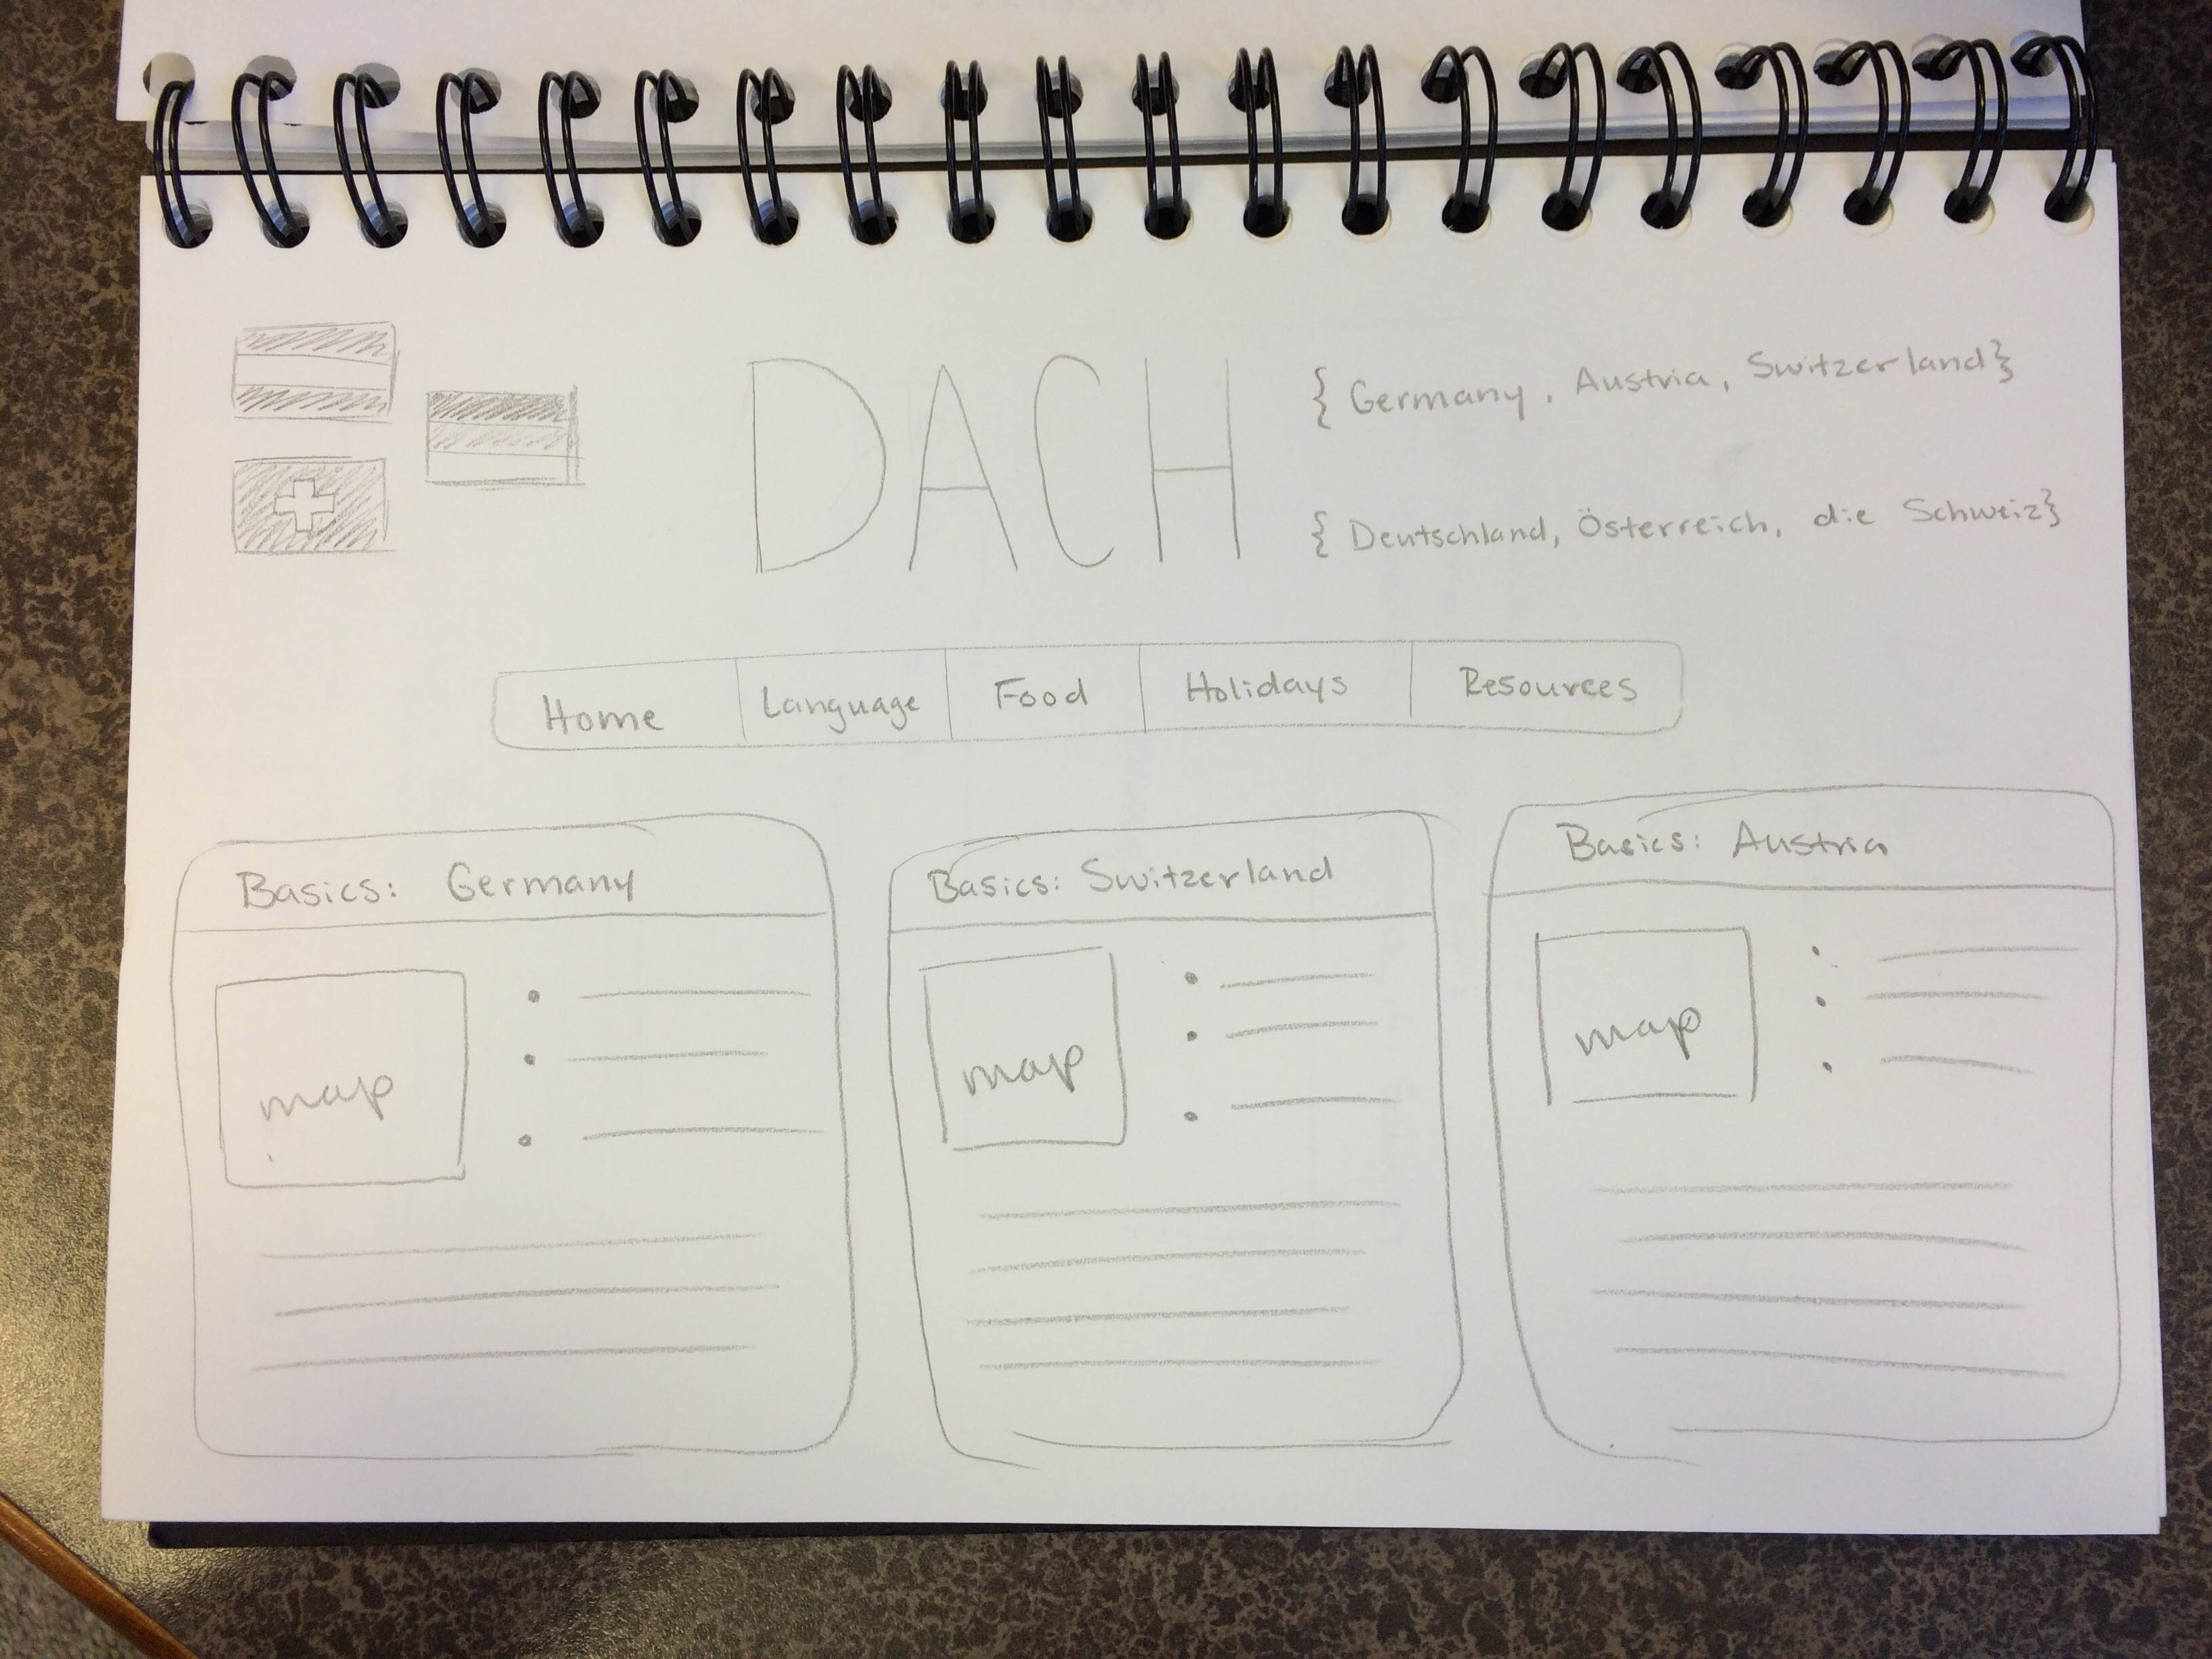 {Germany, Austria, Switzerland}
DACH
{Deutschland, Österreich, die Schweiz}
Home Language Food Holidays Resources
Basics: Germany
map
Basics: Switzerland
map
Basics: Austria
map